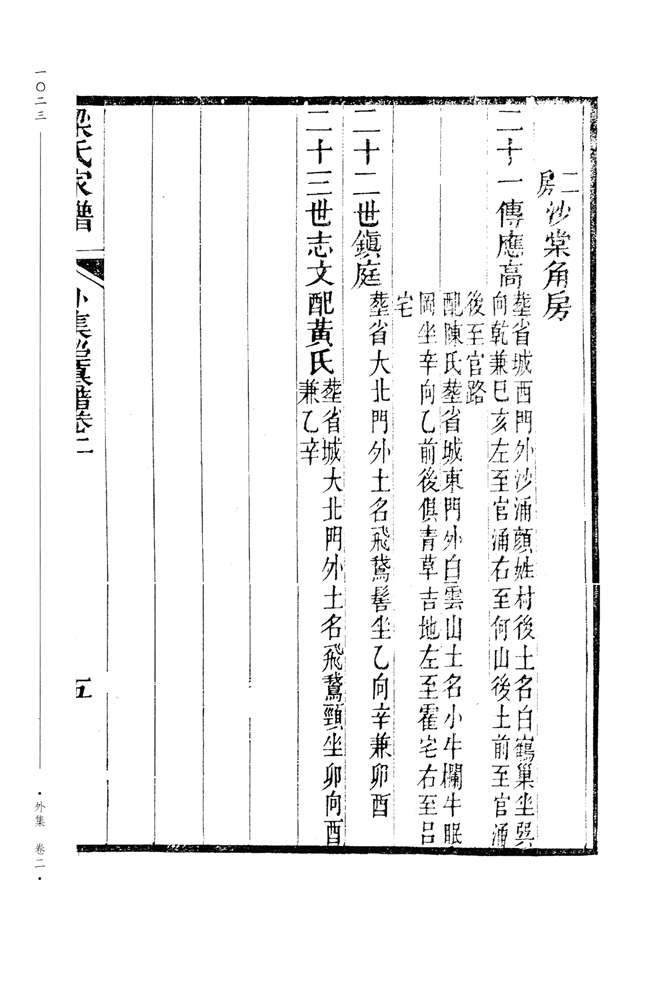 二房沙棠角房
二十一傳應高
塟省城西門外沙涌顏姓村後土名白鶴巢坐巽
向乾兼巳亥左至官涌右至何山後土前至官涌
後至官路
配陳氏塟省城東門外白雲山土名小牛欄牛眠
岡坐辛向乙前後俱青草吉地左至霍宅右至呂
宅
二十二世鎮庭
塟省大北門外土名飛鵞髻坐乙向辛兼卯酉
二十三世志文配黃氏
塟省城大北門外土名飛鵞頸坐卯向酉
兼乙辛
梁氏家譜
外集 卷二
五
一〇二三
·外集 卷二·